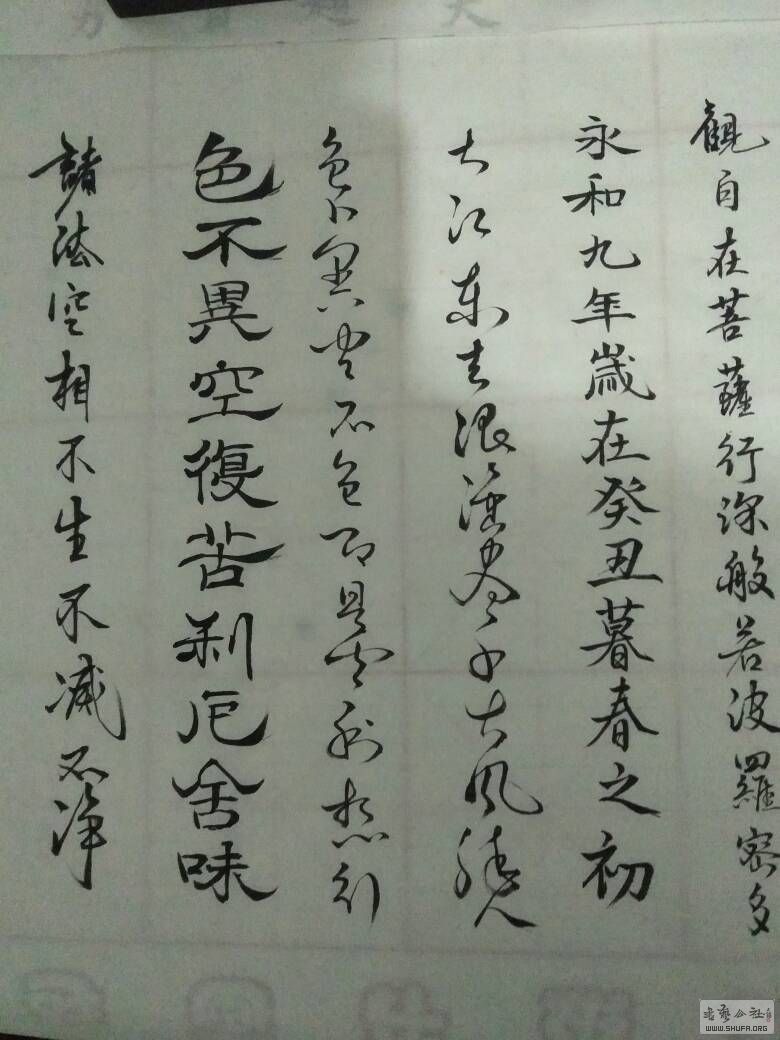 觀自在菩薩行深般若波羅密多
永和九年歲在癸丑暮春之初
大江東去浪淘盡千古風
色不異空不色即是空受想行
色不異空復苦利厄舍味
諸法空相不生不滅不淨
书艺公社
WWW.SHUFA.ORG